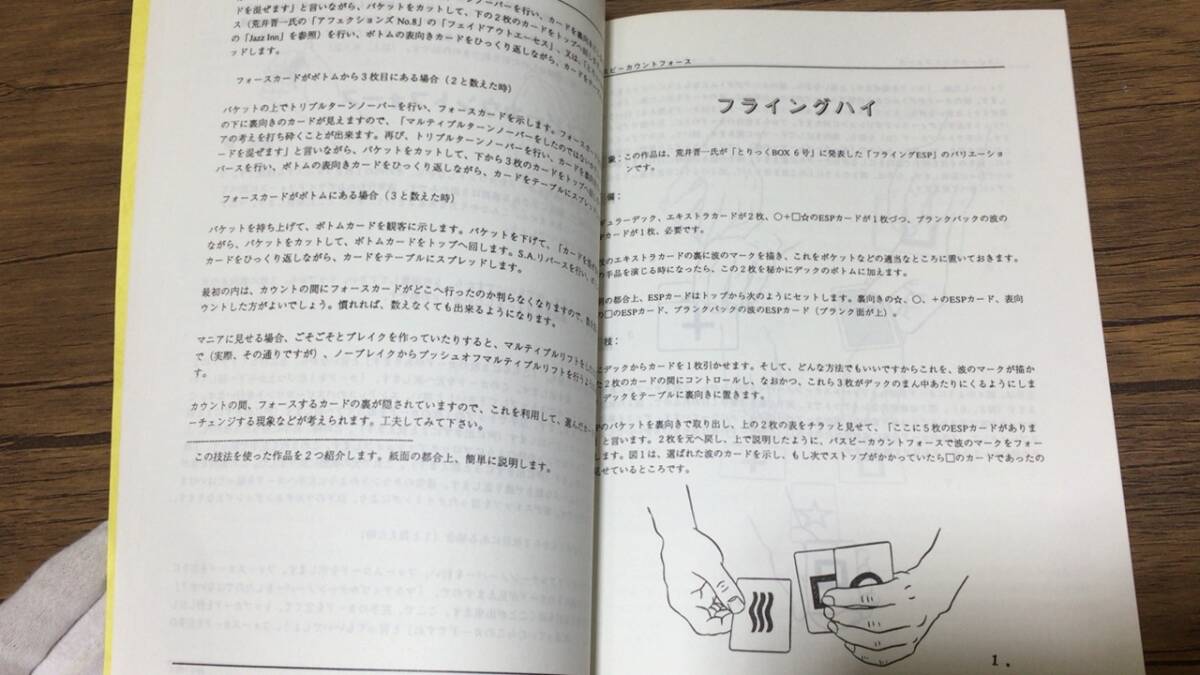 を混ぜます」と言いながら、パケットをカットして、下の2枚のカードをトップへ回し
ス（荒井晋一氏の「アフェクションズ No.8」の「フェイドアウトエーセス」、又は、
の「Jazz Inn」を参照）を行い、ボトムの表向きカードをひっくり返しながら、カードをテーブル
ドします。
フォースカードがボトムから3枚目にある場合（2と数えた時）
パケットの上でトリプルターンノーバーを行い、フォースカードを示します。
の下に裏向きのカードが見えますので、「マルティプルターンノーバーをしたのではないか
アの考えを打ち砕くことが出来ます。再び、トリプルターンノーバーを行い、カードを裏向き
ードを混ぜます」と言いながら、パケットをカットして、下から3枚のカードをトップへ
バースを行い、ボトムの表向きカードをひっくり返しながら、カードをテーブルにスプレッド
フォースカードがボトムにある場合（3と数えた時）
パケットを持ち上げて、ボトムカードを観客に示します。パケットを下げて、「カードを混ぜ
ながら、パケットをカットして、ボトムカードをトップへ回します。S.A.リバースを行い、
カードをひっくり返しながら、カードをテーブルにスプレッドします。
最初の内は、カウントの間にフォースカードがどこへ行ったのか判らなくなりますので、
ウントした方がよいでしょう。慣れれば、数えなくても出来るようになります。
マニアに見せる場合、ごそごそとブレイクを作っていたりすると、マルティプルリフトをした
で（実際、その通りですが）、ノーブレイクからプッシュオフマルティプルリフトを行うように
す。
カウントの間、フォースするカードの裏が隠されていますので、これを利用して、選んだカー
ーチェンジする現象などが考えられます。工夫してみて下さい。
この技法を使った作品を2つ紹介します。紙面の都合上、簡単に説明します。
スピーカウントフォース
フライングハイ
象：この作品は、荒井晋一氏が「とりっくBOX 6号」に発表した「フライングESP」のバリエーショ
ンです。
備：
ギュラーデック、エキストラカードが2枚、○＋□☆のESPカードが1枚づつ、ブランクバックの波の
カードが1枚、必要です。
のエキストラカードの裏に波のマークを描き、これをポケットなどの適当なところに置いておきます。
手品を演じる時になったら、この2枚を秘かにデックのボトムに加えます。
の都合上、ESPカードはトップから次のようにセットします。裏向きの☆、○、＋のESPカード、表向
の□のESPカード、ブランクバックの波のESPカード（ブランク面が上）。
技：
デックからカードを1枚引かせます。そして、どんな方法でもいいですからこれを、波のマークが描か
た2枚のカードの間にコントロールし、なおかつ、これら3枚がデックのまん中あたりにくるようにしま
デックをテーブルに裏向きに置きます。
のパケットを裏向きで取り出し、上の2枚の表をチラッと見せて、「ここに5枚のESPカードがありま
と言います。2枚を元へ戻し、上で説明したように、パスピーカウントフォースで波のマークをフォー
します。図1は、選ばれた波のカードを示し、もし次でストップがかかっていたら□のカードであったの
見せているところです。
1．